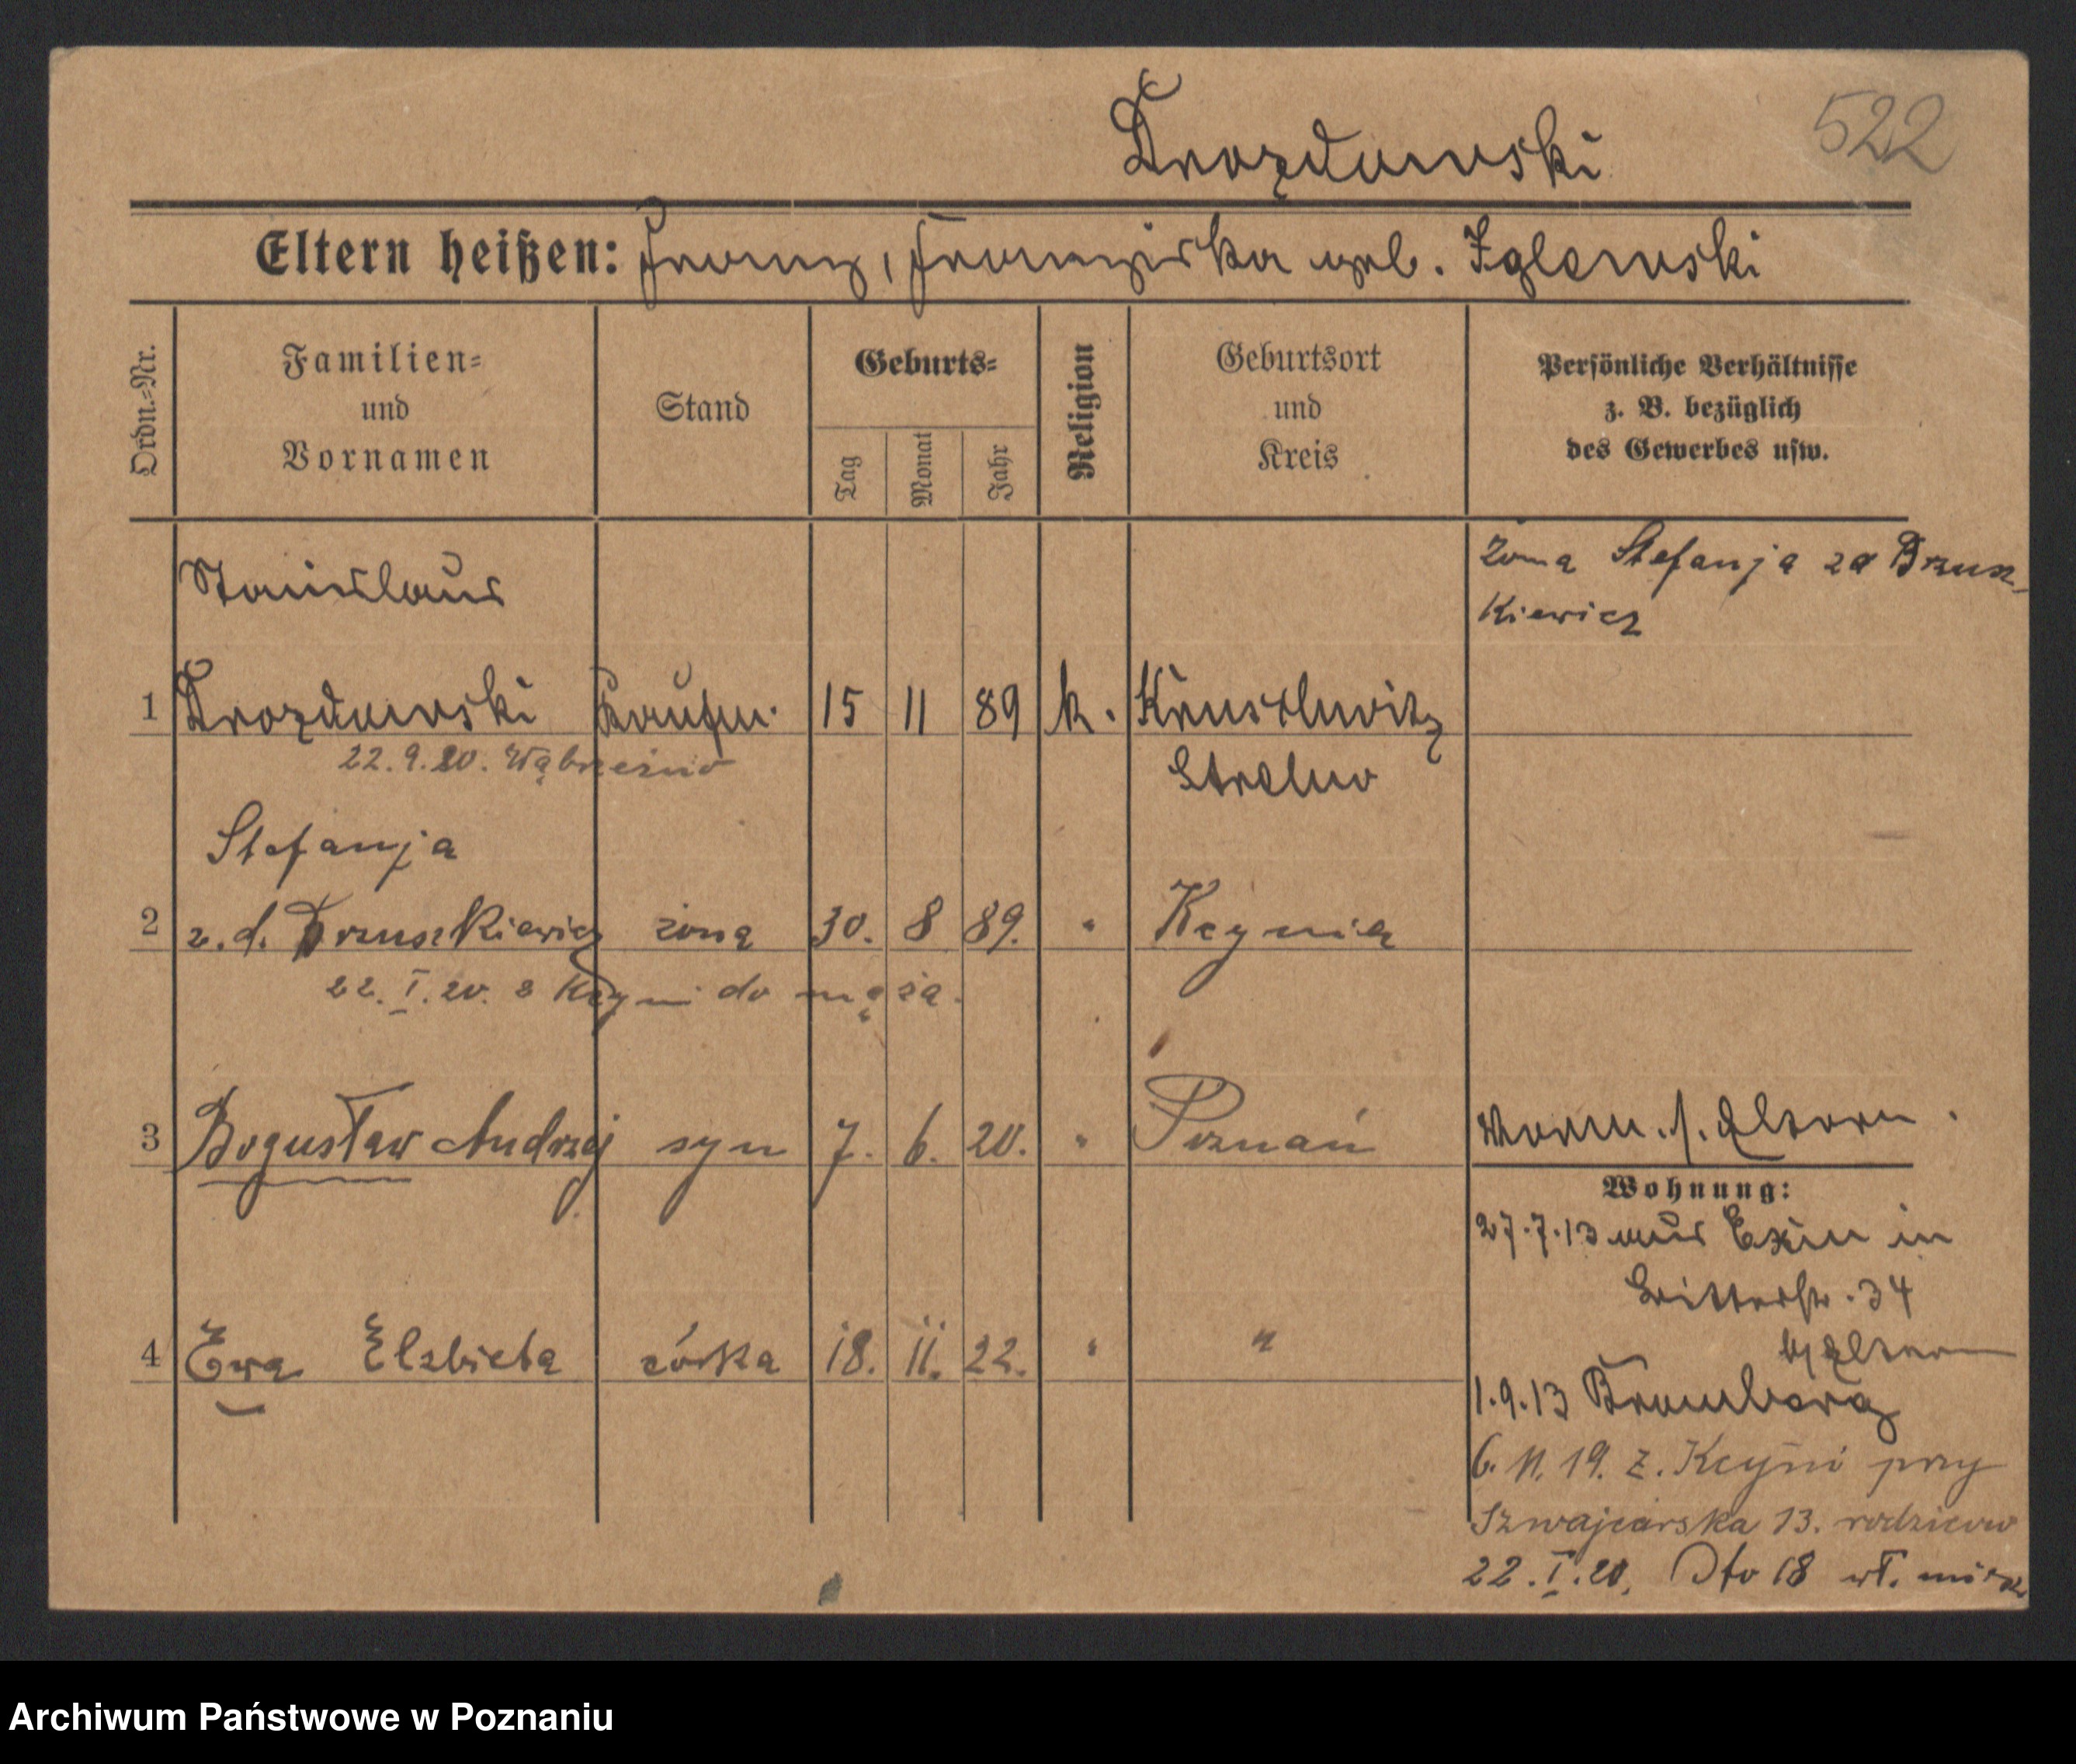 Drozdowski
522
Eltern heißen: Franz, Franziska geb. Iglewski
Ordn.-Nr.
Familien-
und
Vornamen
Stand
Geburts-
Tag
Monat
Jahr
Religion
Geburtsort
und
Kreis
Persönliche Verhältnisse
z. B. bezüglich
des Gewerbes usw.
żona Stefanja zd Brusz-
kiewicz
Stanislaus
1 Drozdowski Kaufm. 15 11 89 k. Kruschwitz
22.9.20. Wąbrzeźno
Strelno
Stefanja
2 z. d. Bruszkiewicz żona 30. 8 89. " Kcynia
22. I. 20. z Kcyni do męża.
3 Bogusław Andrzej syn 7. 6. 20. " Poznań
Wohn. b. Eltern.
Wohnung:
27.7.13 aus Exin in
Ritterstr. 34
b/ Eltern
4 Ewa Elżbieta córka 18. 11. 22. " "
1.9.13 Bromberg
6. 11. 19. z. Kcyni przy
Szwajcarska 13. rodziców
22. I. 20. Oto 18 wł. miesz
Archiwum Państwowe w Poznaniu